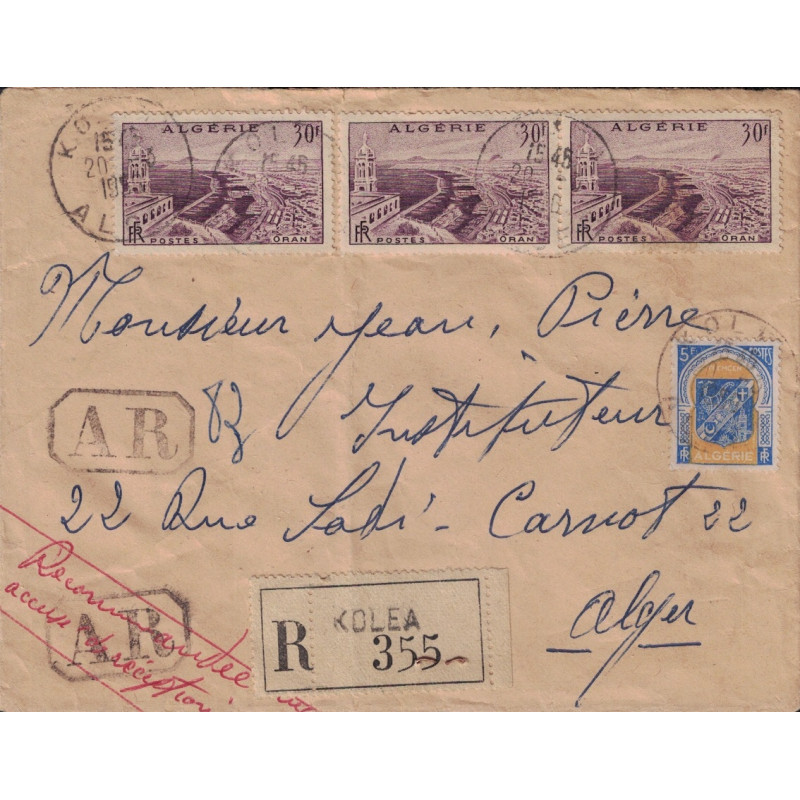 ALGÉRIE 30F ALGÉRIE 30F ALGÉRIE 30F
RF POSTES ORAN RF POSTES ORAN RF POSTES ORAN
15 45
20
Monsieur Jean, Pierre
5F POSTES
RF ALGÉRIE RF
AR
Instituteur
22 Rue Sadi-Carnot 22
Alger
Recommandée
accusé de réception
AR
KOLEA
R 355